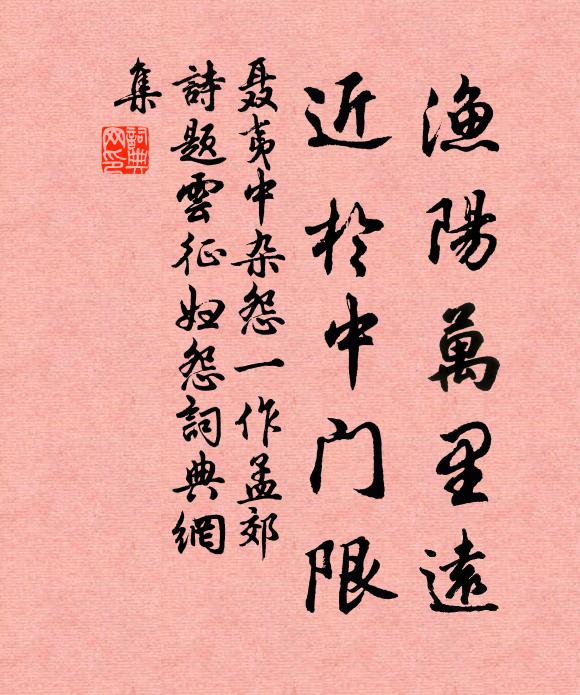 漁陽萬里遠
近於中门限
聂夷中杂怨一作孟郊
詩題雲征妇怨詞典網
集
詞典
网印